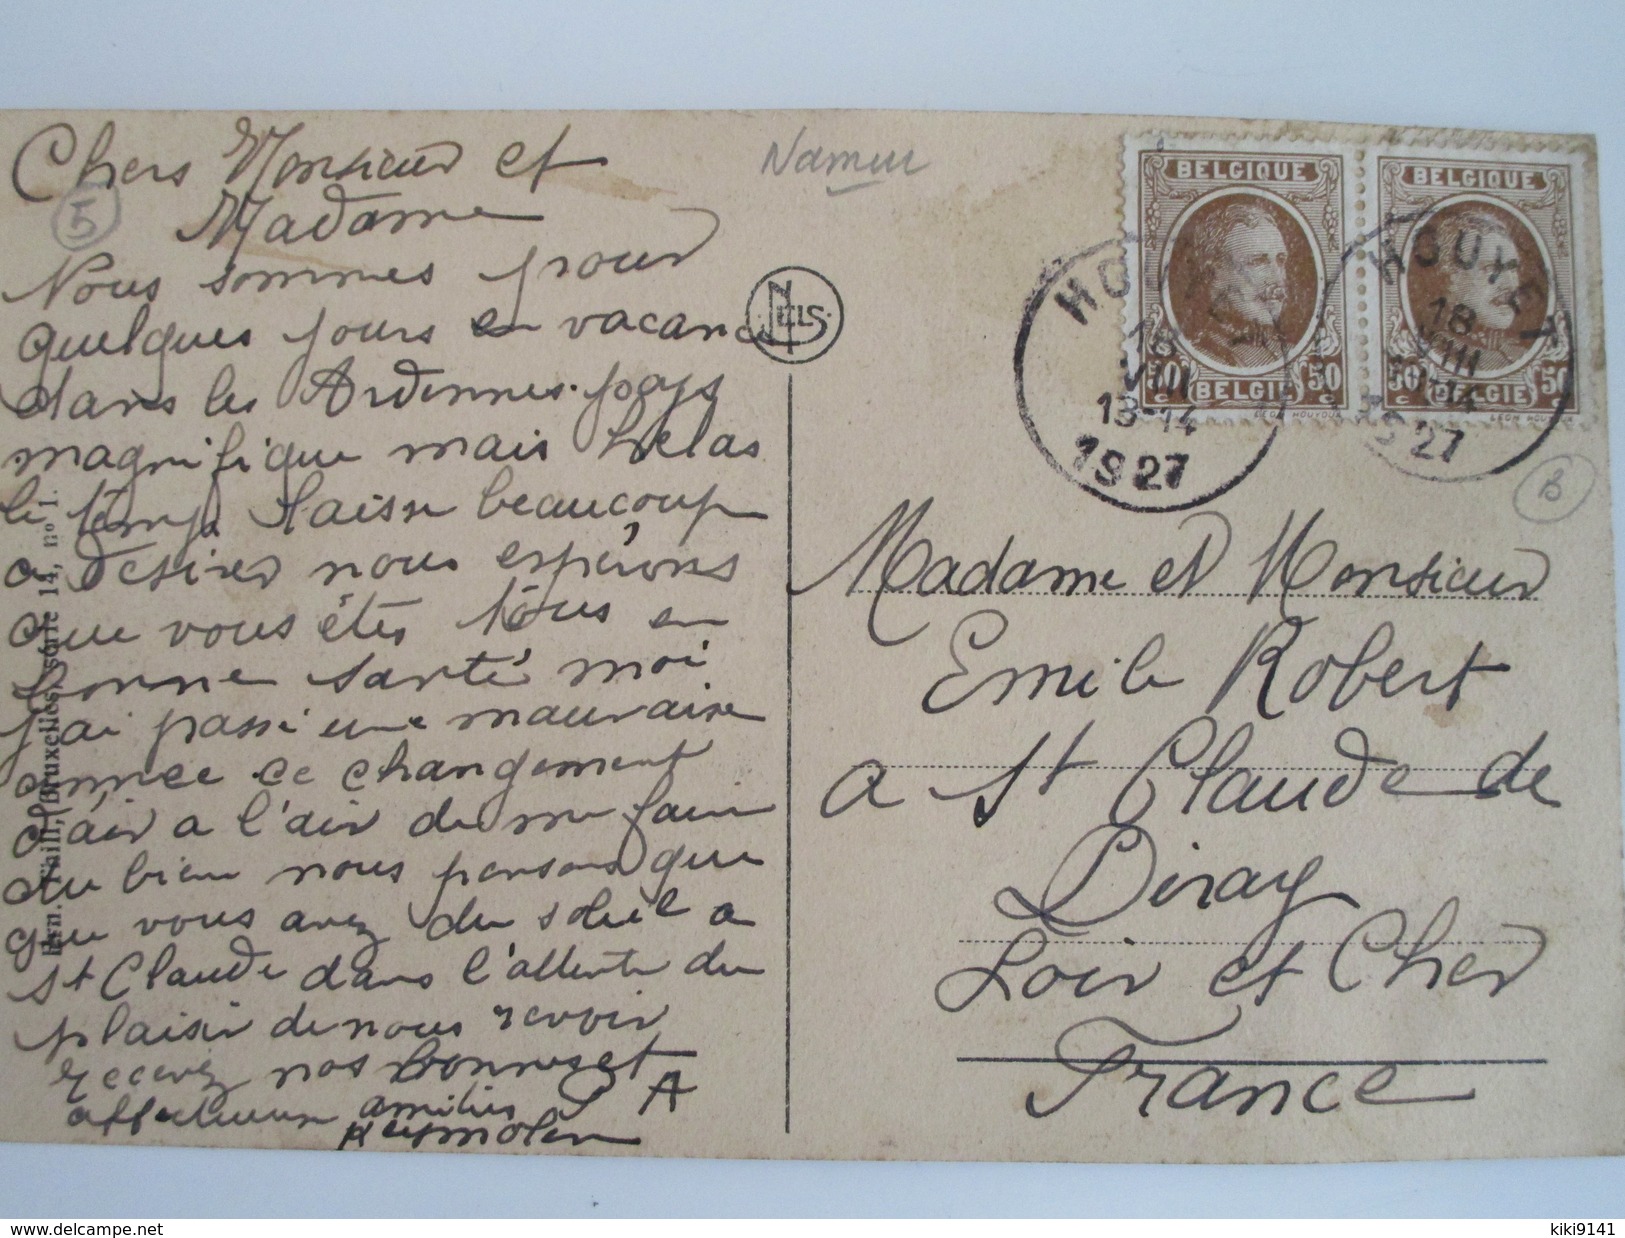 Chers Monsieur et
Madame
5
Nous sommes pour
quelques jours en vacance
dans les Ardennes. pays
magnifique mais helas
le temps laisse beaucoup
a desirer nous espérons
que vous êtes tous en
bonne santé moi
j'ai passé une mauvaise
annee ce changement
d'air a l'air de me faire
du bien nous pensons que
que vous avez du soleil a
St Claude dans l'attente du
plaisir de nous revoir
recevez nos bonnes et
affectueuses amitiés
A
Ern. Thill, Bruxelles, série 14, no 1.
Namur
NELS.
BELGIQUE
50 BELGIE 50
c c
LEON HOUYOUX
BELGIQUE
50 BELGIE 50
c
HOUYET
18
VIII
13-14
1927
HOUYET
18
VIII
13-14
1927
B
Madame et Monsieur
Emile Robert
a St Claude de
Diray
Loir et Cher
France
kiki9141